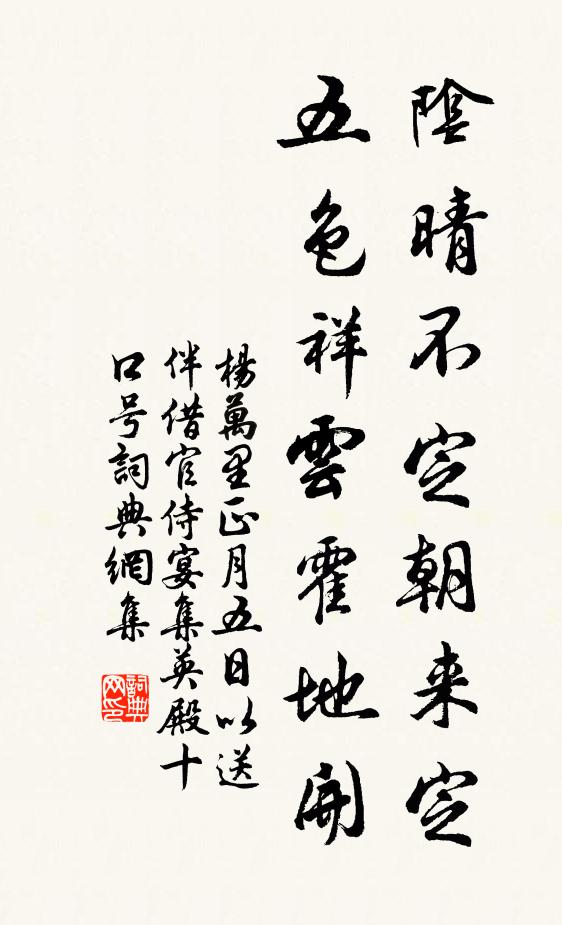 陰晴不定朝来定
五色祥雲霍地開
楊萬里正月五日以送
伴借官侍宴集英殿十
口号詞典網集
詞典网印